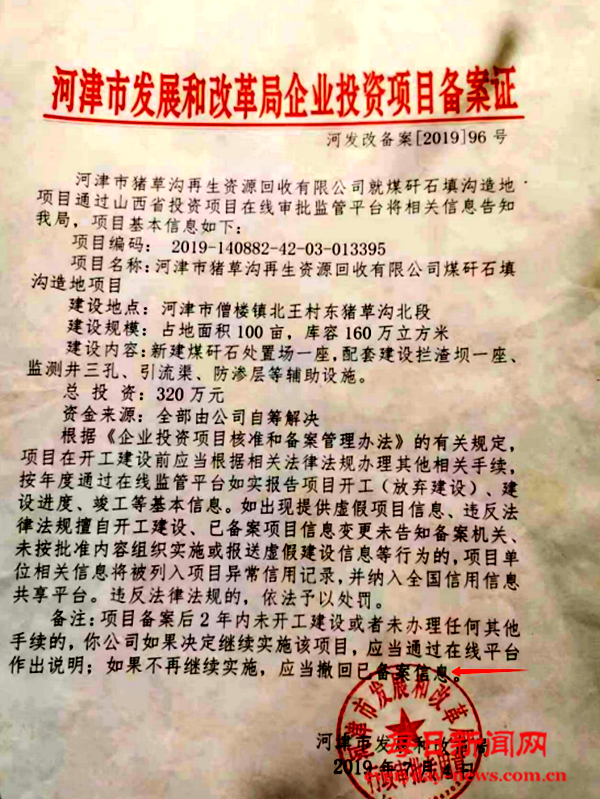 河津市发展和改革局企业投资项目备案证
河发改备案[2019]96号
河津市猪草沟再生资源回收有限公司就煤矸石填沟造地
项目通过山西省投资项目在线审批监管平台将相关信息告知
我局，项目基本信息如下：
项目编码： 2019-140882-42-03-013395
项目名称：河津市猪草沟再生资源回收有限公司煤矸石填
沟造地项目
建设地点：河津市僧楼镇北王村东猪草沟北段
建设规模：占地面积100亩，库容160万立方米
建设内容：新建煤矸石处置场一座，配套建设拦渣坝一座、
监测井三孔、引流渠、防渗层等辅助设施。
总 投 资：320万元
资金来源：全部由公司自筹解决
根据《企业投资项目核准和备案管理办法》的有关规定，
项目在开工建设前应当根据相关法律法规办理其他相关手续，
按年度通过在线监管平台如实报告项目开工（放弃建设）、建
设进度、竣工等基本信息。如出现提供虚假项目信息、违反法
律法规擅自开工建设、已备案项目信息变更未告知备案机关、
未按批准内容组织实施或报送虚假建设信息等行为的，项目单
位相关信息将被列入项目异常信用记录，并纳入全国信用信息
共享平台。违反法律法规的，依法予以处罚。
备注：项目备案后2年内未开工建设或者未办理任何其他
手续的，你公司如果决定继续实施该项目，应当通过在线平台
作出说明；如果不再继续实施，应当撤回已备案信息。
河津市发展和改革局
河津市发展和改革局
2019年7月 日
行政审批专用章
每日新闻网
-news.com.cn